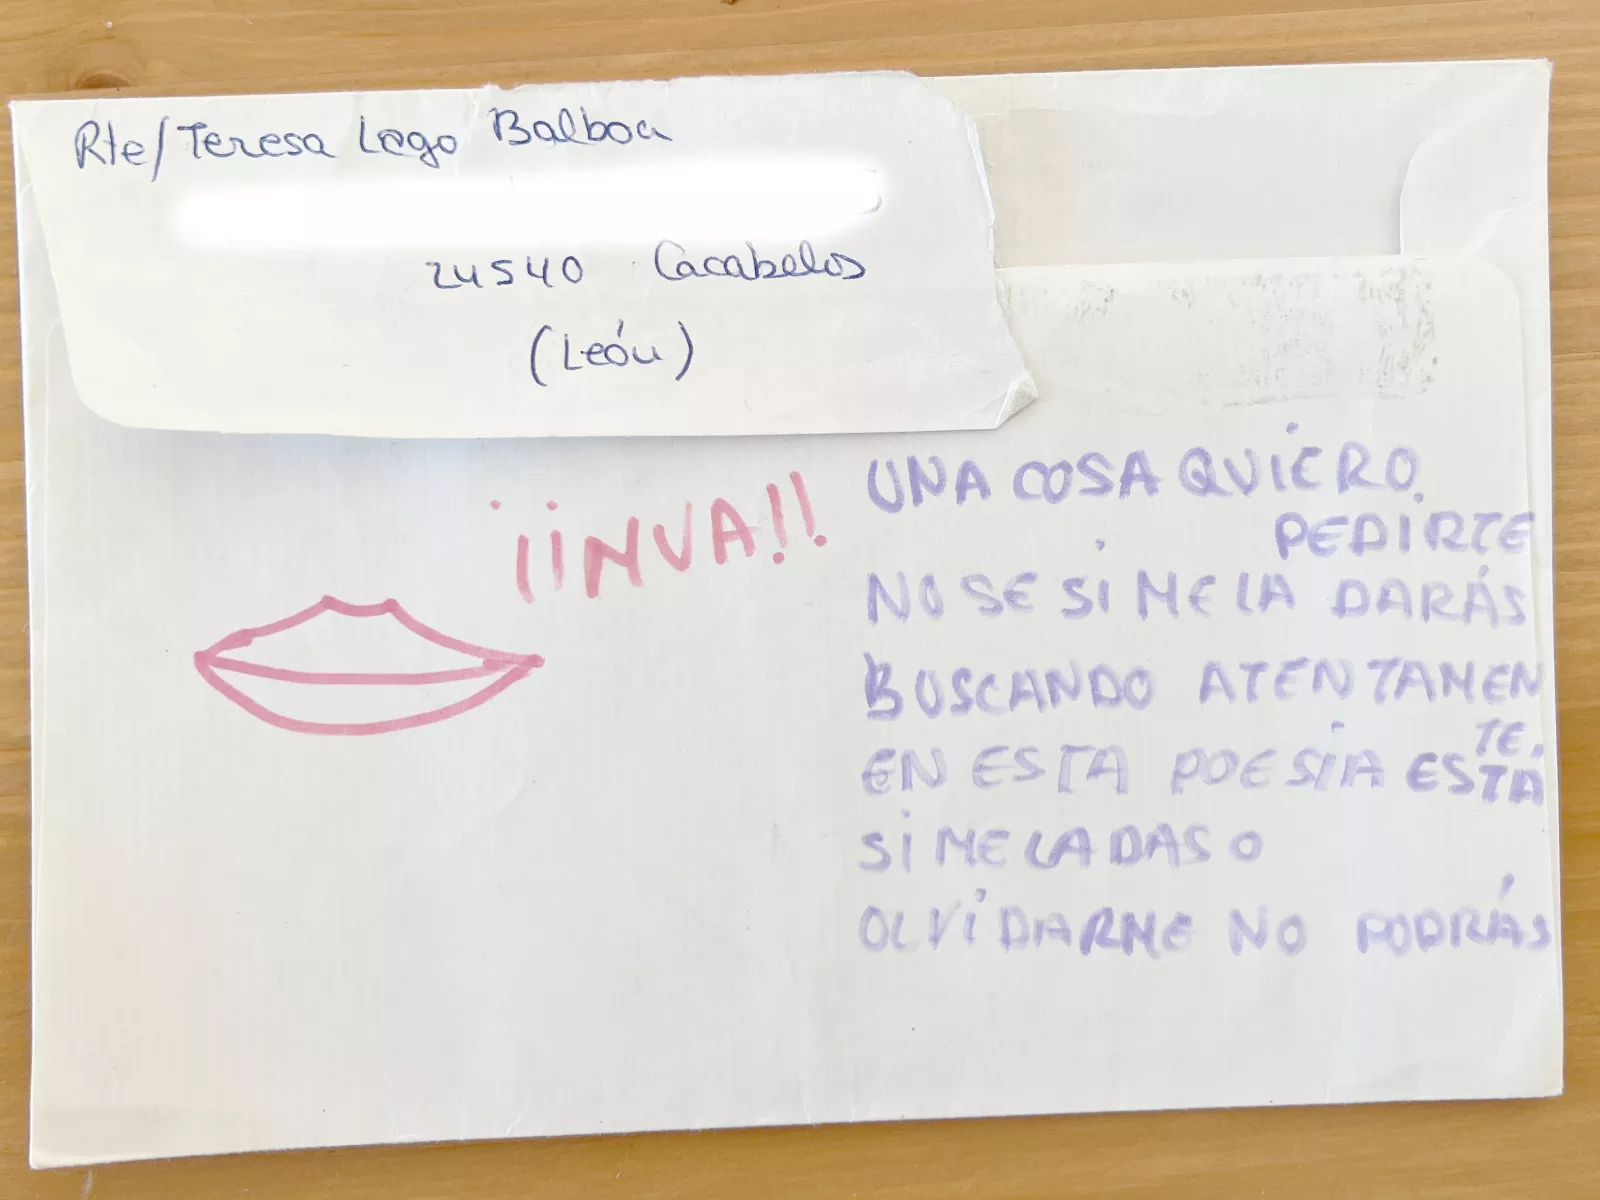 Rte/Teresa Lago Balboa
24540 Cacabelos
(León)
¡¡INVA!!
UNA COSA QUIERO
PEDIRTE
NO SE SI ME LA DARÁS
BUSCANDO ATENTAMEN
TE,
EN ESTA POESIA ESTÁ
SI ME LA DAS O
OLVIDARME NO PODRÁS